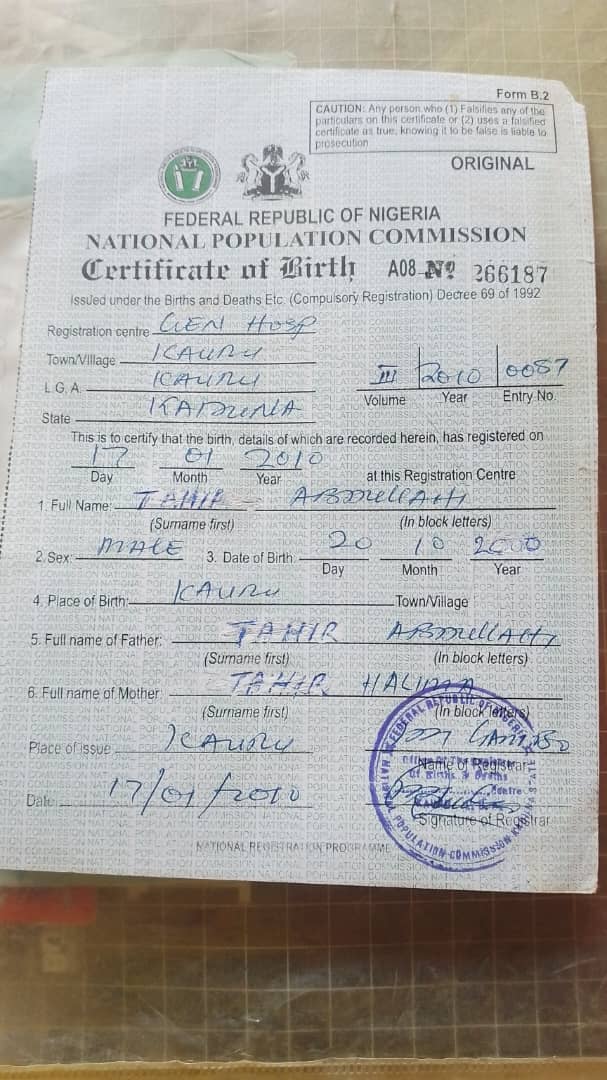 Form B.2
CAUTION: Any person who (1) Falsifies any of the
particulars on this certificate or (2) uses a falsified
certificate as true, knowing it to be false is liable to
prosecution
ORIGINAL
FEDERAL REPUBLIC OF NIGERIA
NATIONAL POPULATION COMMISSION
Certificate of Birth A08 Nº 266187
Issued under the Births and Deaths Etc. (Compulsory Registration) Decree 69 of 1992
Registration centre GEN HOSP
Town/Village KAURU
L.G.A. KAURU
State KADUNA
III 2010 0087
Volume Year Entry No.
This is to certify that the birth, details of which are recorded herein, has registered on
17 01 2010
Day Month Year at this Registration Centre
1. Full Name: TAHIR ABDULLAHI
(Surname first) (In block letters)
2. Sex: MALE 3. Date of Birth. 20 10 2000
Day Month Year
4. Place of Birth: KAURU Town/Village
5. Full name of Father: TAHIR ABDULLAHI
(Surname first) (In block letters)
6. Full name of Mother: TAHIR HALIMA
(Surname first) (In block letters)
Place of issue KAURU
Name of Registrar
Date: 17/01/2010
Signature of Registrar
NATIONAL REGISTRATION PROGRAMME